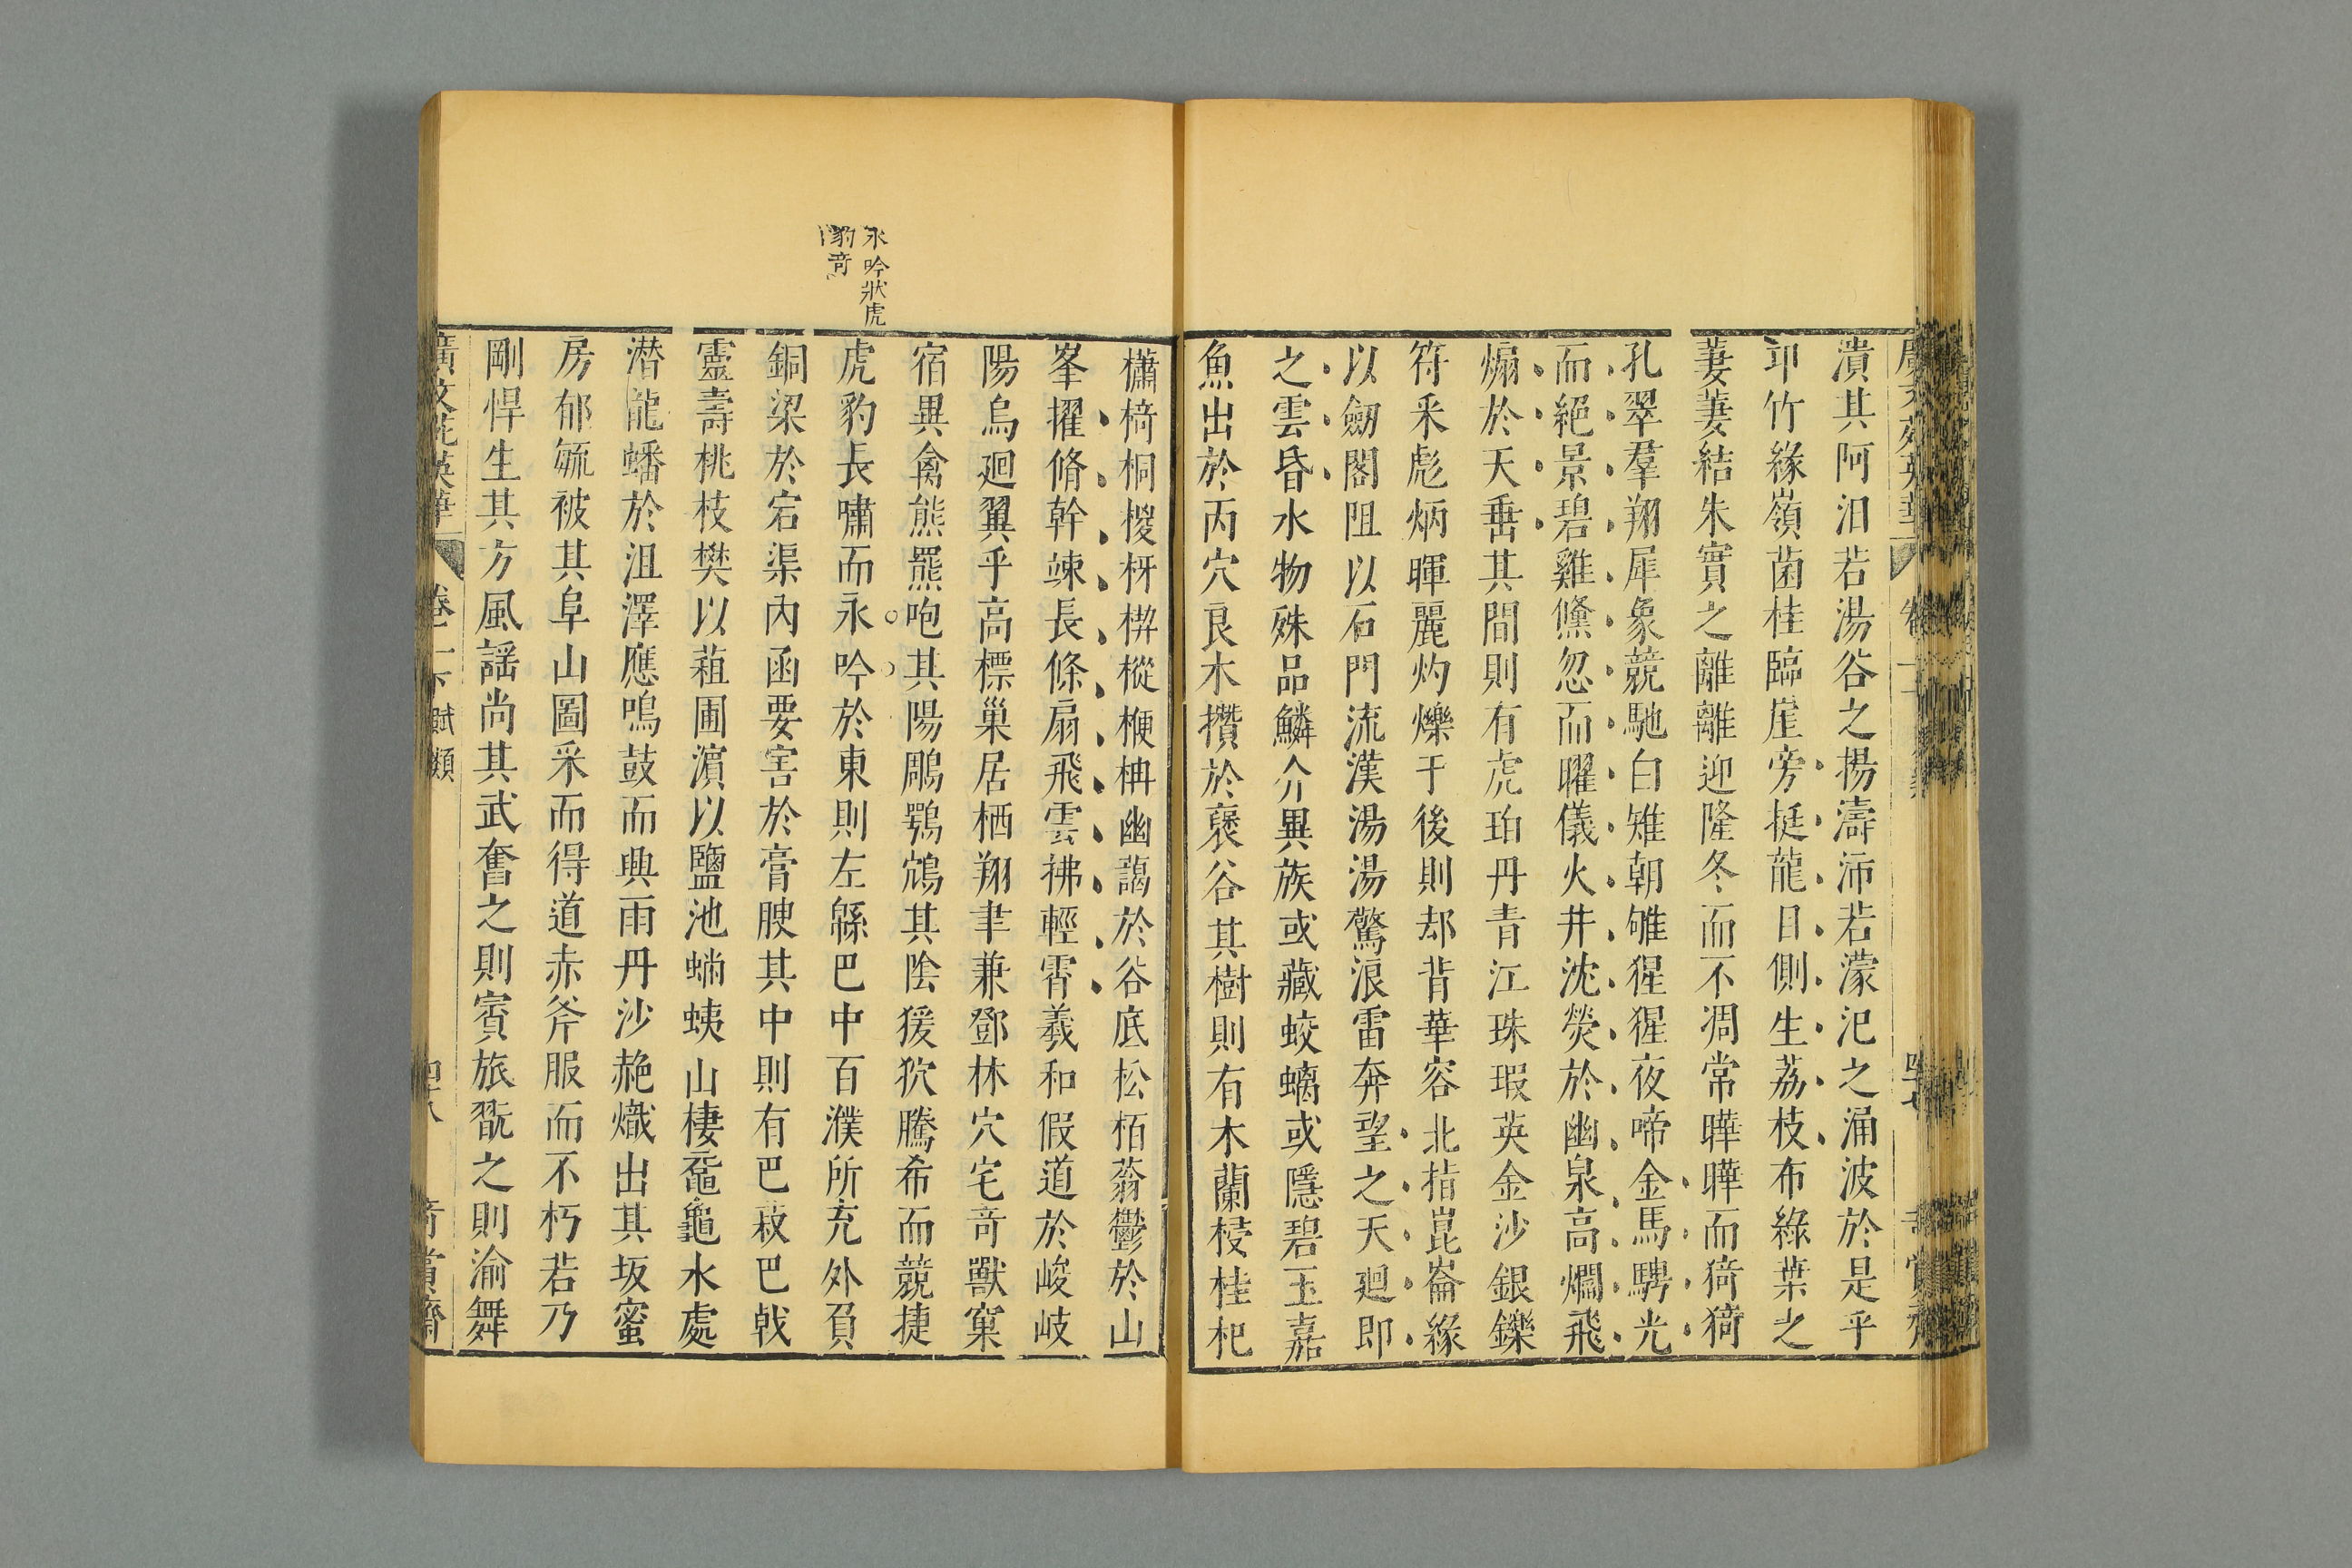 潰其阿汨若湯谷之揚濤沛若濛汜之涌波於是乎
卭竹緣嶺菌桂臨崖旁挺龍目側生荔枝布綠葉之
萋萋結朱實之離離迎隆冬而不凋常曄曄而猗猗
孔翠羣翔犀象競馳白雉朝雊猩猩夜啼金馬騁光
而絕景碧雞儵忽而曜儀火井沈熒於幽泉高爓飛
煽於天垂其間則有虎珀丹青江珠瑕英金沙銀鑠
符采彪炳暉麗灼爍于後則却背華容北指崑崙緣
以劒閣阻以石門流漢湯湯驚浪雷奔望之天廻即
之雲昏水物殊品鱗介異族或藏蛟螭或隱碧玉嘉
魚出於丙穴良木攢於褒谷其樹則有木蘭梫桂杞
櫹椅桐椶枒楔樅楩柟幽藹於谷底松栢蓊鬱於山
峯擢脩幹竦長條扇飛雲拂輕霄羲和假道於峻岐
陽烏廻翼乎高標巢居栖翔聿兼鄧林穴宅竒獸窠
宿異禽熊羆咆其陽鵰鶚鴥其陰猨狖騰希而競捷
永吟狀虎
豹竒
虎豹長嘯而永吟於東則左緜巴中百濮所充外負
銅梁於宕渠內函要害於膏腴其中則有巴菽巴戟
靈壽桃枝樊以蒩圃濵以鹽池蝺蛦山棲黿龜水處
潛龍蟠於沮澤應鳴鼓而興雨丹沙赩熾出其坂蜜
房郁毓被其阜山圖采而得道赤斧服而不朽若乃
剛悍生其方風謡尚其武奮之則賓旅翫之則渝舞
廣文苑英華 卷十下 賦類 四十八 竒賞齋